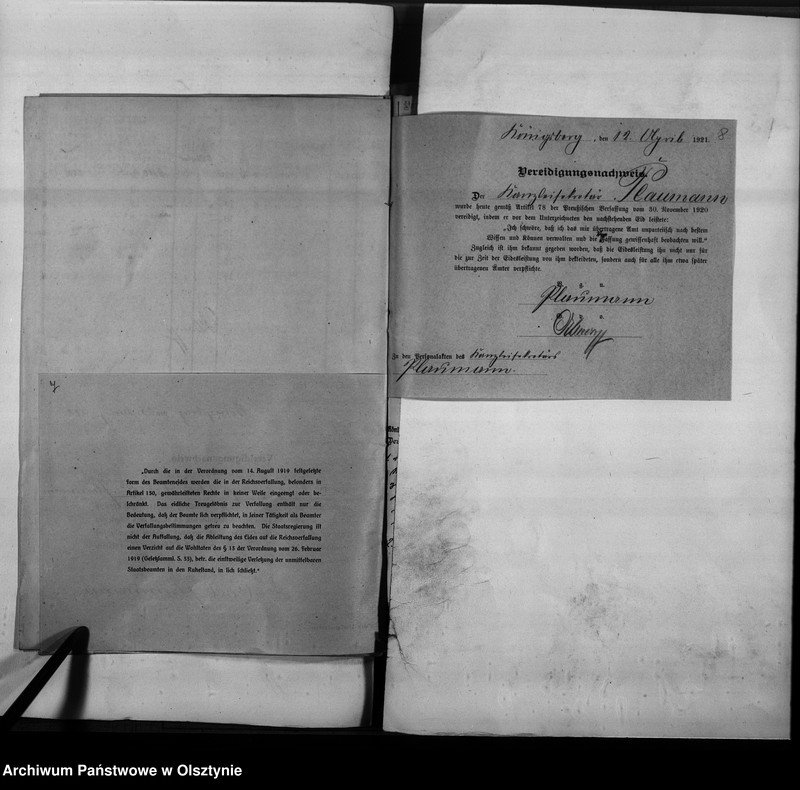 y
„Durch die in der Verordnung vom 14. August 1919 festgesetzte
Form des Beamteneides werden die in der Reichsverfassung, besonders in
Artikel 130, gewährleisteten Rechte in keiner Weise eingeengt oder be-
schränkt. Das eidliche Treugelöbnis zur Verfassung enthält nur die
Bedeutung, daß der Beamte sich verpflichtet, in seiner Tätigkeit als Beamter
die Verfassungsbestimmungen getreu zu beachten. Die Staatsregierung ist
nicht der Auffassung, daß die Ableistung des Eides auf die Reichsverfassung
einen Verzicht auf die Wohltaten des § 15 der Verordnung vom 26. Februar
1919 (Gesetzsamml. S. 33), betr. die einstweilige Versetzung der unmittelbaren
Staatsbeamten in den Ruhestand, in sich schließt.“
Königsberg, den 12. April 1921. 8
Vereidigungsnachweis.
Der Kanzleisekretär Plaumann
wurde heute gemäß Artikel 78 der Preußischen Verfassung vom 30. November 1920
vereidigt, indem er vor dem Unterzeichneten den nachstehenden Eid leistete:
„Ich schwöre, daß ich das mir übertragene Amt unparteiisch nach bestem
Wissen und Können verwalten und die Verfassung gewissenhaft beobachten will.“
Zugleich ist ihm bekannt gegeben worden, daß die Eidesleistung ihn nicht nur für
die zur Zeit der Eidesleistung von ihm bekleideten, sondern auch für alle ihm etwa später
übertragenen Ämter verpflichte.
v. g. u.
Plaumann
Zu den Personalakten des Kanzleisekretärs
Plaumann.
Archiwum Państwowe w Olsztynie